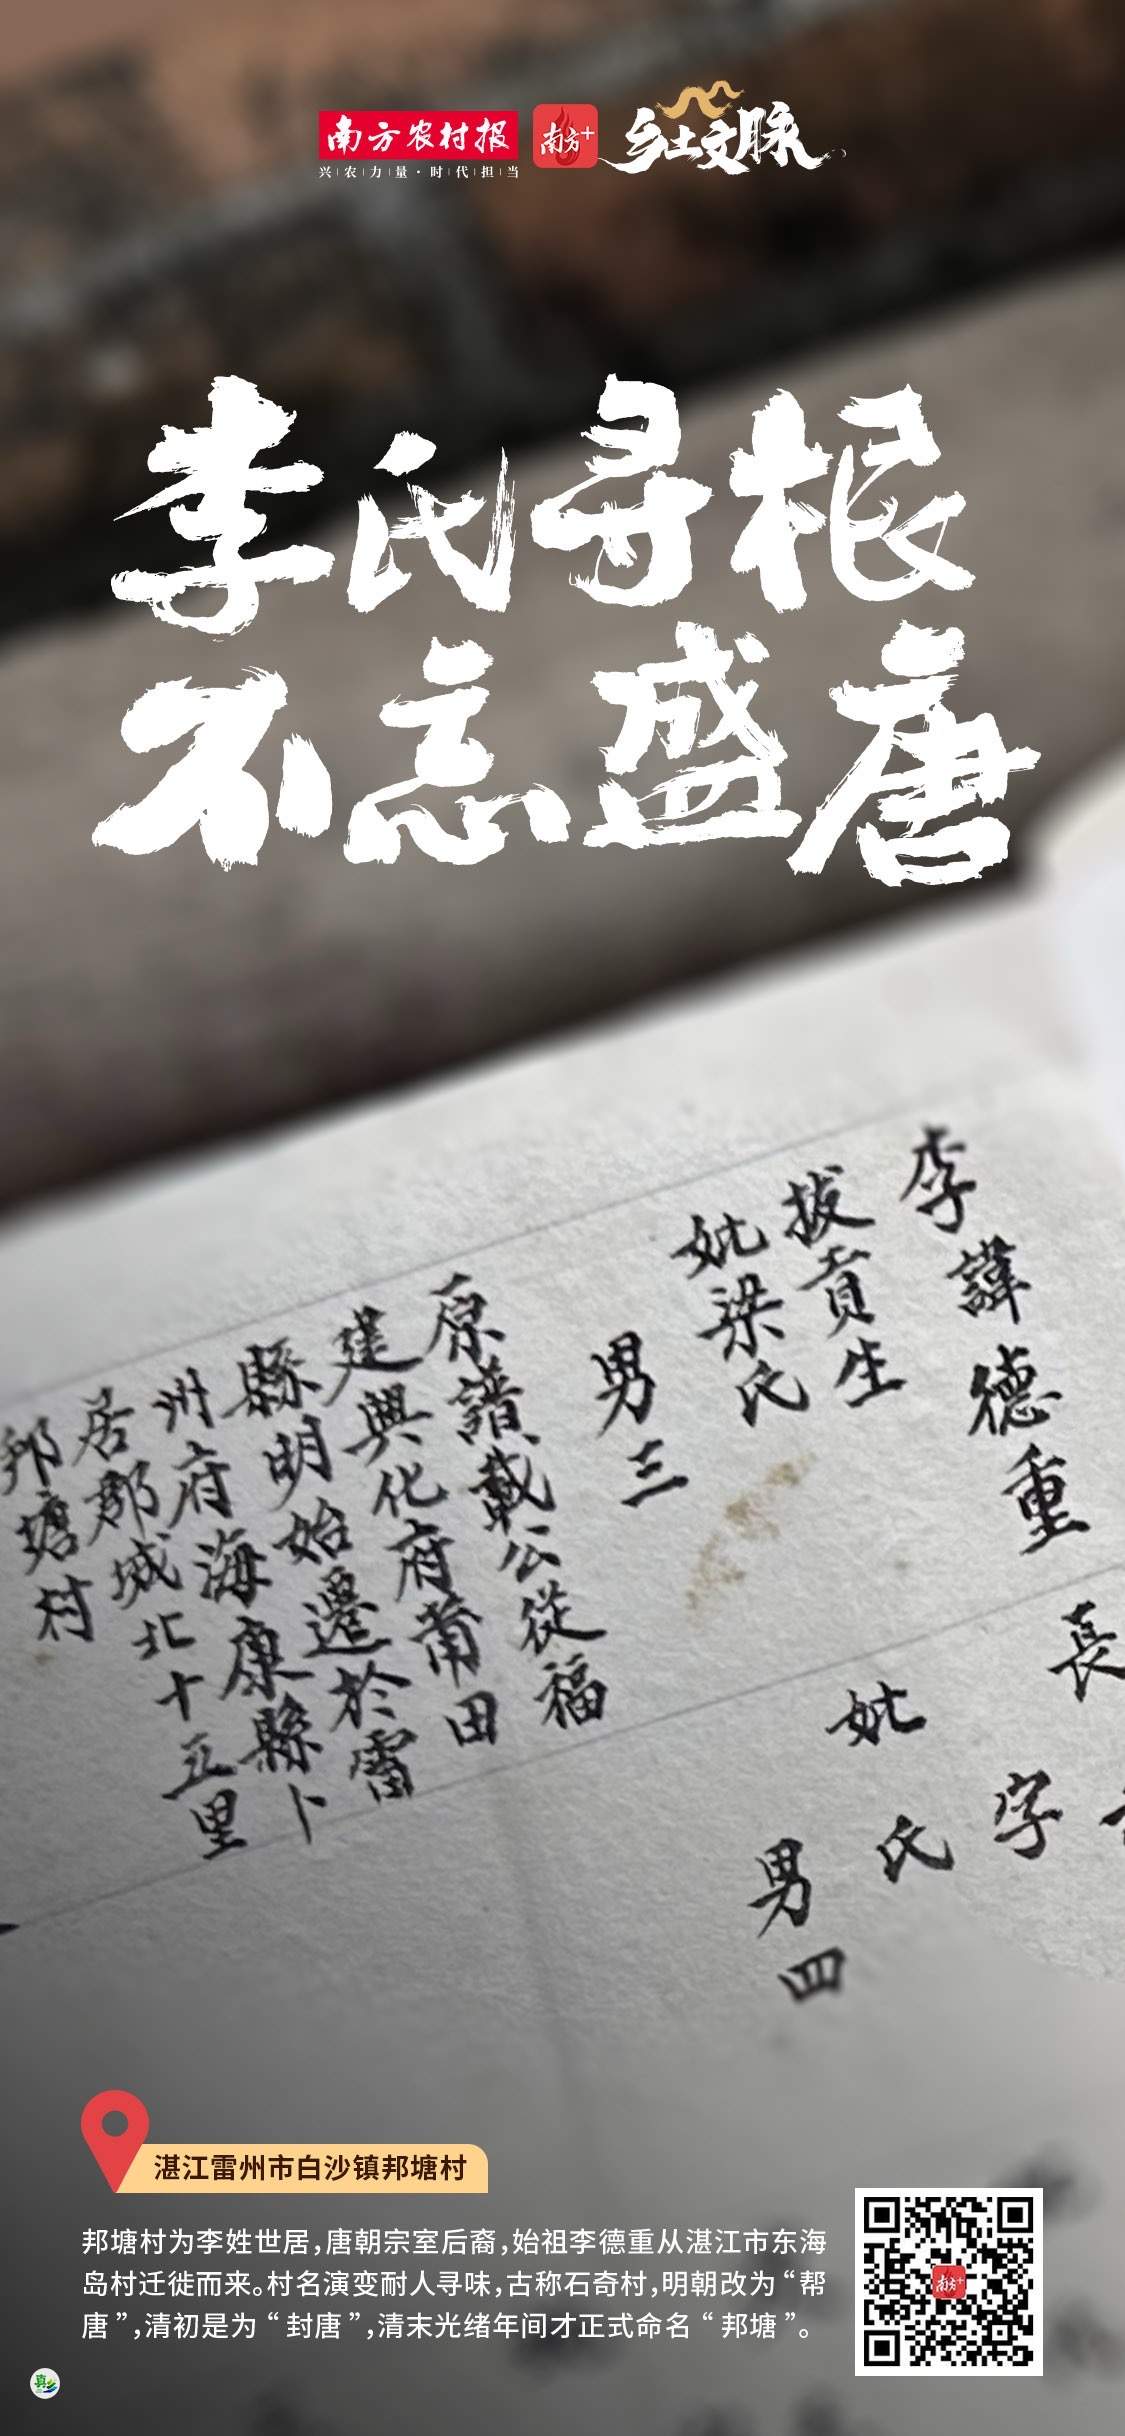 南方农村报
兴农力量·时代担当
南方+
乡土文脉
李氏寻根
不忘盛唐
李諱德重
拔貢生
妣梁氏
男三
原譜載公從福
建興化府莆田
縣明始遷於雷
州府海康縣卜
居郡城北十五里
邦塘村
長
字
妣
氏
男四
湛江雷州市白沙镇邦塘村
邦塘村为李姓世居，唐朝宗室后裔，始祖李德重从湛江市东海
岛村迁徙而来。村名演变耐人寻味，古称石奇村，明朝改为“帮
唐”，清初是为“封唐”，清末光绪年间才正式命名“邦塘”。
南方+
真乡